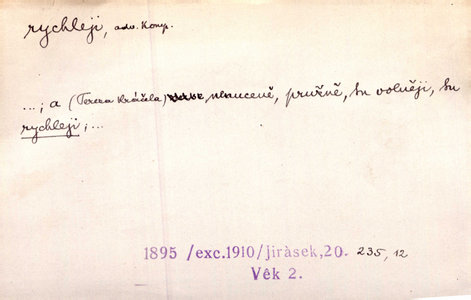 rychleji, adv. Komp.
...; a (Tereza kráčela) nenuceně, pružně, tu volněji, tu
rychleji; ...
1895 /exc.1910/jiràsek,20. 235, 12
Věk 2.